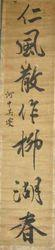 仁風散作柳湖春